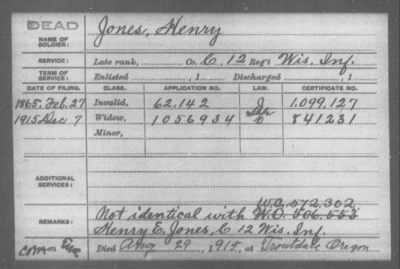 DEAD
NAME OF SOLDIER: Jones, Henry
SERVICE: Late rank, Co. C, 12 Reg't Wis. Inf.
TERM OF SERVICE: Enlisted , 1 Discharged , 1
DATE OF FILING. CLASS. APPLICATION NO. LAW. CERTIFICATE NO.
1865, Feb. 27 Invalid, 62.142 1.099,127
1915 Dec 7 Widow, 1056934 841231
Minor,
ADDITIONAL SERVICES:
W.C. 572,302
REMARKS: Not identical with W.O.
Henry E. Jones, C 12 Wis. Inf.
Died Aug 29, 1915, at Troutdale Oregon